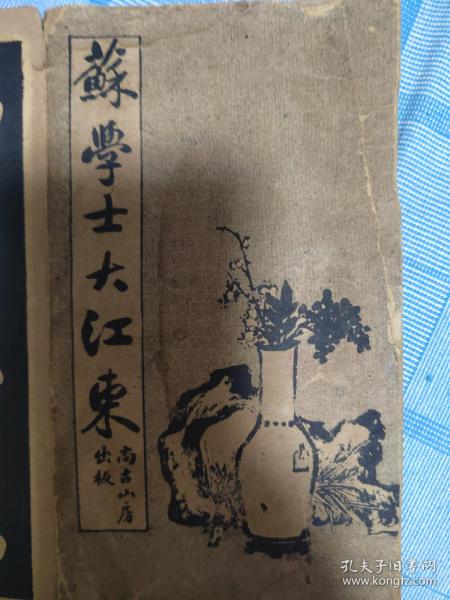 蘇學士大江東
尚古山房
出板
孔夫子旧书网
www.kongfz.com